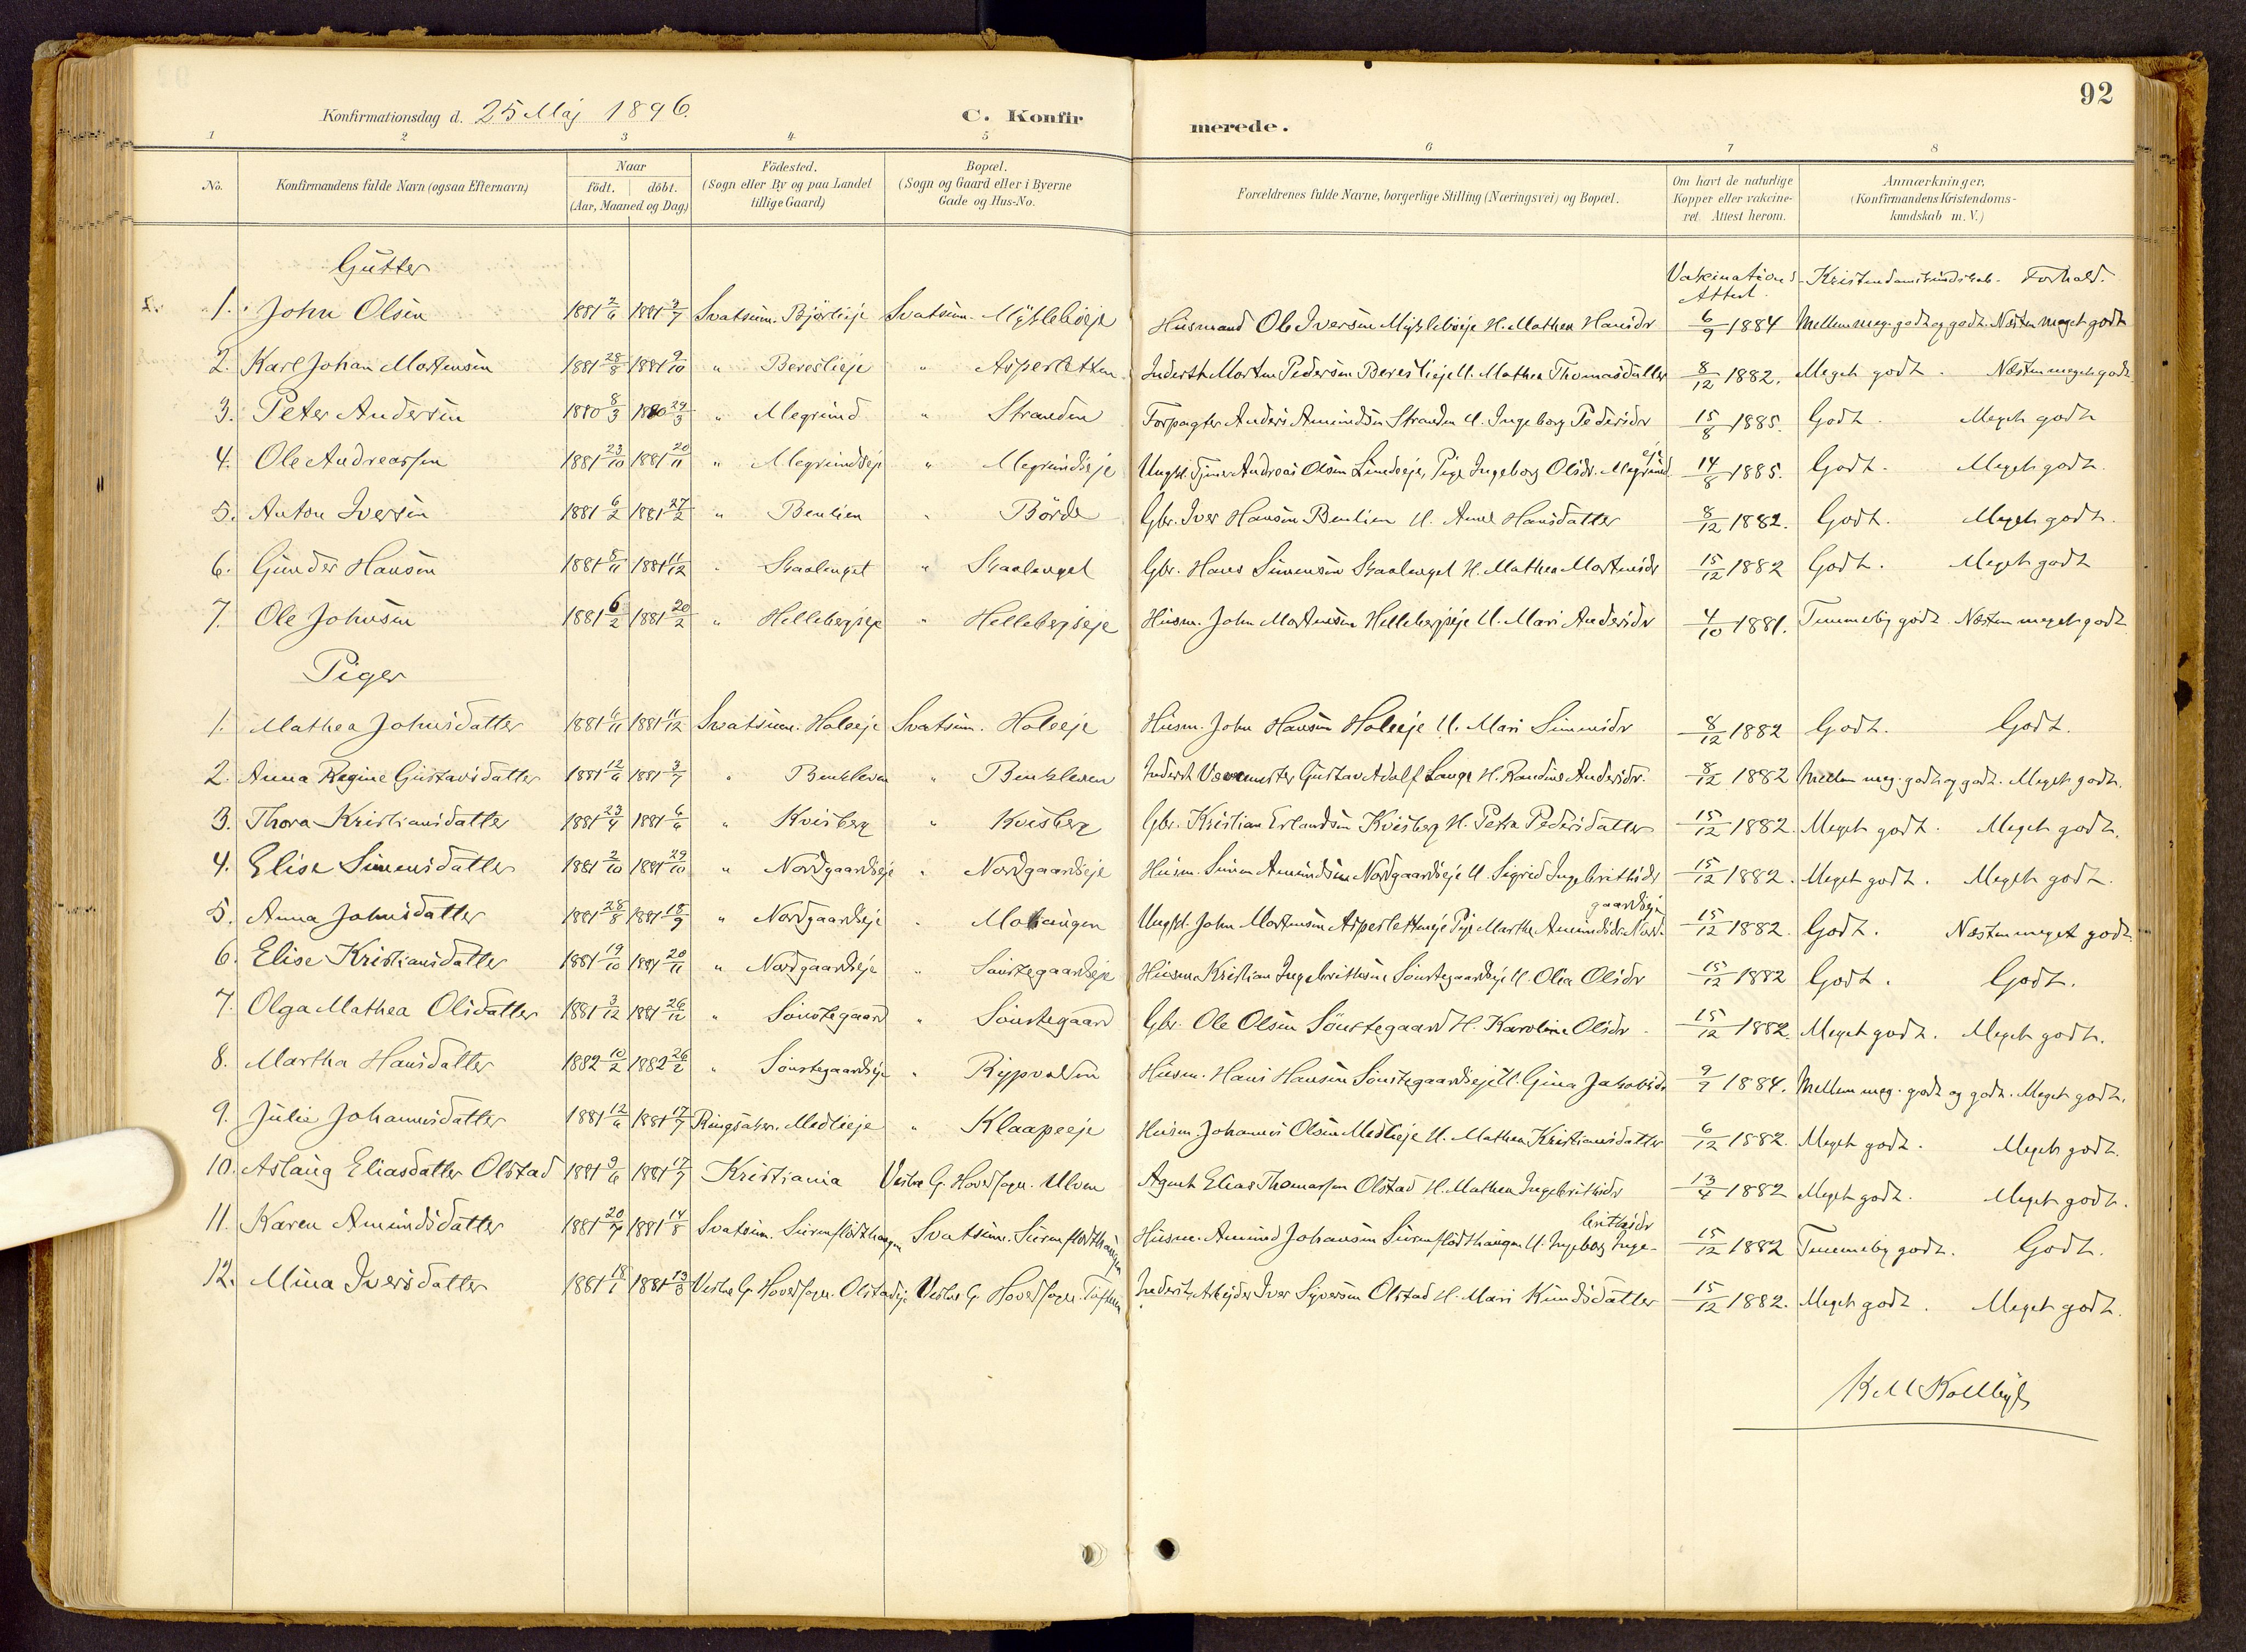 92
Konfirmationsdag d. 25 Maj 1896.
C. Konfirmerede.
1 2 3 4 5 6 7 8
No. Konfirmandens fulde Navn (ogsaa Efternavn) Naar födt. döbt. (Aar, Maaned og Dag) Födested. (Sogn eller By og paa Landet tillige Gaard) Bopæl. (Sogn og Gaard eller i Byerne Gade og Hus-No. Forældrenes fulde Navne, borgerlige Stilling (Næringsvei) og Bopæl. Om havt de naturlige Kopper eller vakcineret. Attest herom. Anmærkninger, (Konfirmandens Kristendomskundskab m. V.)
Gutter
Vakcinations Attest. Kristendomskundskab. Forhold.
1. John Olsen 1881 2/6 1881 3/7 Svatsum. Björlieje Svatsum. Husmand Ole Iversen H. Mathea Hansdr 6/9 1884 Mellem meg. godt og godt. Næsten meget godt
2. Karl Johan Mortensen 1881 28/8 1881 9/10 " Bereslieje " Aspesletten Inderst Morten Pedersen Bereslieje H. Mathea Thomasdatter 8/12 1882. Meget godt. Næsten meget godt
3. Peter Andersen 1880 8/3 1880 29/3 " Megrund " Stranden Forpagter Anders Amundsen Stranden H. Ingeborg Pedersdr 15/8 1885. Godt. Meget godt
4. Ole Andreassen 1881 23/10 1881 20/11 " Megrundseje " Megrundseje Ungkl. Tjener Andreas Olsen Lundseje, Pige Ingeborg Olsdr. Megrundeje 14/8 1885. Godt. Meget godt.
5. Anton Iversen 1881 6/2 1881 27/2 " Benlien " Börde Gbr. Iver Hansen Benlien H. Anne Hansdatter 8/12 1882. Godt. Meget godt.
6. Gunder Hansen 1881 5/11 1881 11/12 " Skaalenget " Skaalenget Gbr. Hans Simensen Skaalenget H. Mathea Mortensdr 15/12 1882 Godt. Meget godt
7. Ole Johnsen 1881 6/2 1881 20/2 " Hellebergseje " Hellebergseje Husm. John Mortensen Hellebergseje H. Mari Andersdr 4/10 1881. Temmelig godt. Næsten meget godt
Piger
1. Mathea Johnsdatter 1881 6/11 1881 11/12 Svatsum. Holseje Svatsum. Holseje Husm. John Hansen Holseje H. Mari Simensdr 8/12 1882 Godt. Godt.
2. Anna Regine Gustavsdatter 1881 12/6 1881 3/7 " Benkleven " Benkleven Inderst Gustav Adolf Lange H. Randine Andersdr. 8/12 1882 Mellem meg. godt og godt. Meget godt.
3. Thora Kristiansdatter 1881 23/4 1881 6/6 " Kvisberg " Kvisberg Gbr. Kristian Erlandsen Kvisberg H. Petra Pedersdatter 15/12 1882. Meget godt. Meget godt.
4. Elise Simensdatter 1881 2/10 1881 29/10 " Nordgaardseje " Nordgaardseje Husm. Simen Amundsen Nordgaardseje H. Sigrid Ingebrithsdr 15/12 1882. Meget godt. Meget godt.
5. Anna Johnsdatter 1881 28/8 1881 18/9 " Nordgaardseje " Ungkl. John Mortensen Aspesletteneje Pige Marthe Amundsdr Nordgaardseje 15/12 1882. Godt. Næsten meget godt.
6. Elise Kristiansdatter 1881 19/10 1881 20/11 " Nordgaardseje " Sönstegaardseje Husm. Kristian Ingebrithsen Sönstegaardseje H. Olea Olsdr 15/12 1882 Godt. Godt.
7. Olga Mathea Olsdatter 1881 3/12 1881 26/12 " Sönstegaard " Sönstegaard Gbr. Ole Olsen Sönstegaard H. Karoline Olsdr. 15/12 1882. Meget godt. Meget godt.
8. Martha Hansdatter 1882 10/2 1882 26/2 " Sönstegaardseje " Rypvolden Husm. Hans Hansen Sönstegaardseje H. Gina Jakobsdr 9/7 1884. Mellem meg. godt og godt. Meget godt.
9. Julie Johannesdatter 1881 12/6 1881 17/7 Ringsaker. Medlieje " Klaapeeje Husm Johannes Olsen Medlieje H. Mathea Kristiansdatter 6/12 1882. Meget godt. Meget godt.
10. Aslaug Eliasdatter Olstad 1881 9/6 1881 17/7 Kristiania Vestre G. Hovedsogn. Ulven Agent Elias Thomassen Olstad H. Mathea Ingebrithsdr 13/4 1882 Meget godt. Meget godt.
11. Karen Amundsdatter 1881 20/7 1881 14/8 Svatsum. Surenflödthaugen Svatsum. Surenflödthaugen Husm. Amund Johansen Surenflödthaugen H. Ingeborg Ingebrithsdr 15/12 1882 Temmelig godt. Godt.
12. Mina Iversdatter 1881 18/1 1881 13/3 Vestre G. Hovedsogn. Olstadeje Vestre G. Hovedsogn. Inderst, Arbejder Iver Syversen Olstad H. Mari Knudsdatter 15/12 1882. Meget godt. Meget godt.